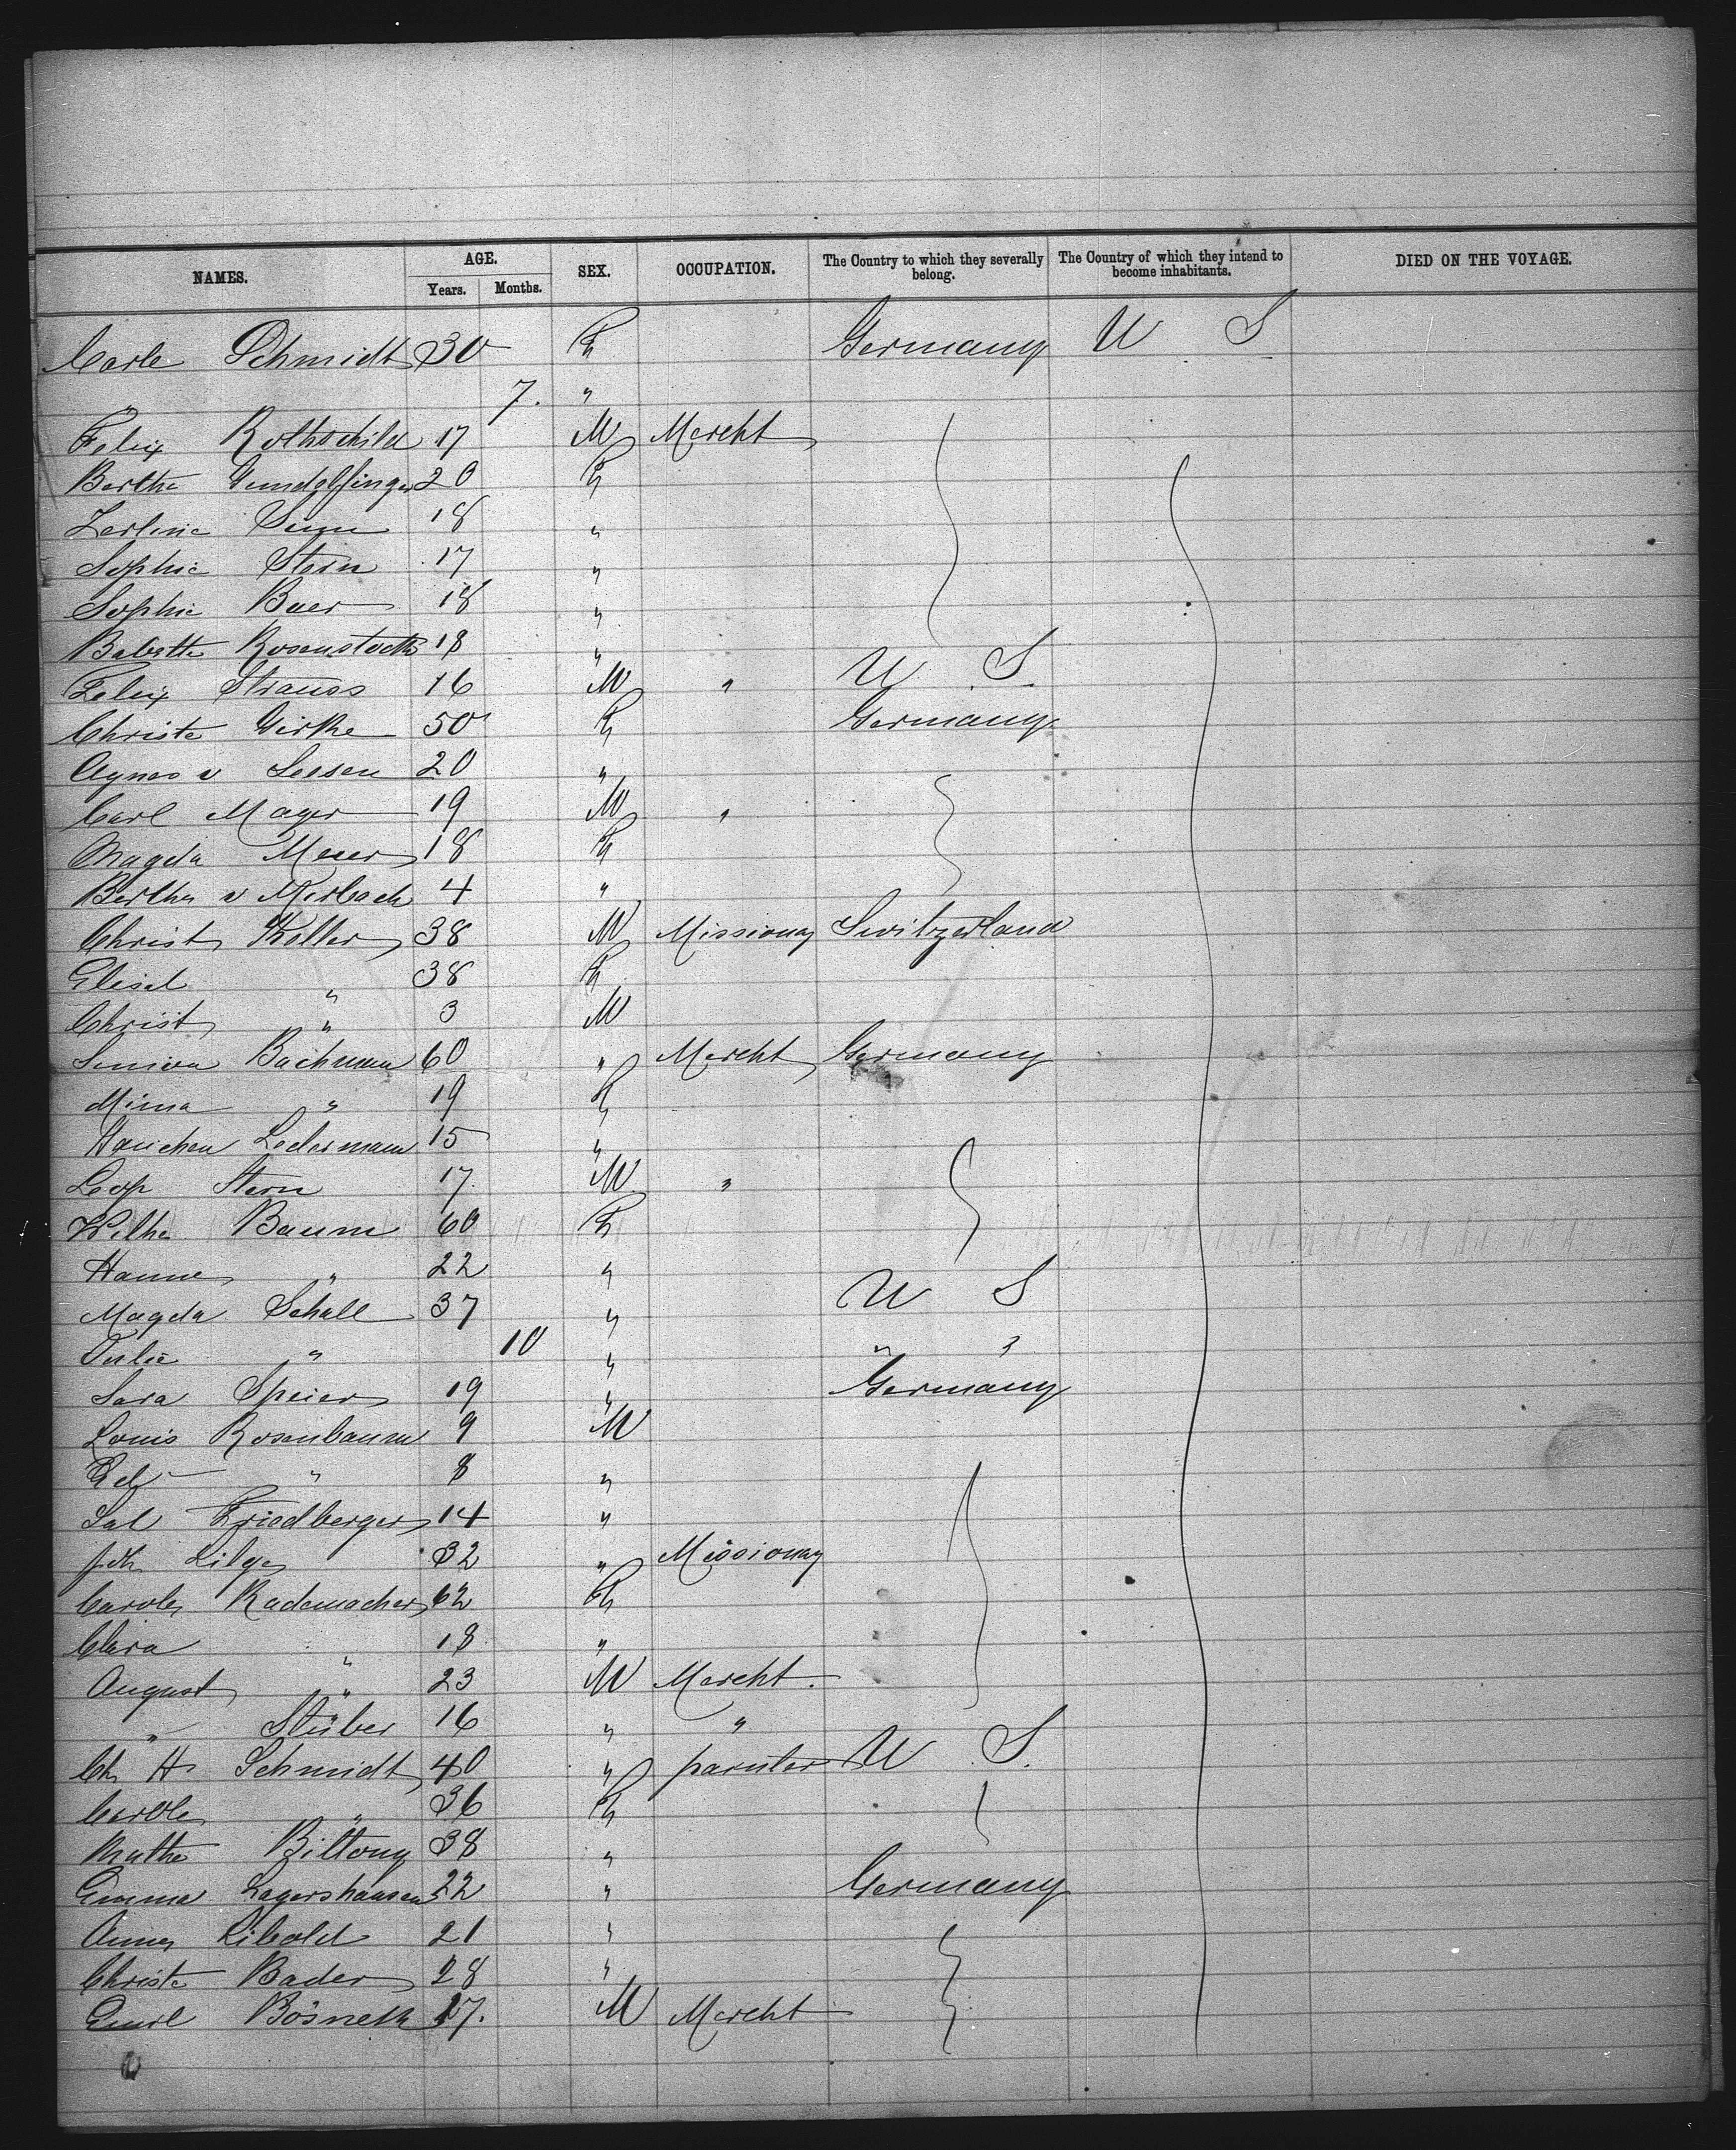 NAMES. AGE. Years. Months. SEX. OCCUPATION. The Country to which they severally belong. The Country of which they intend to become inhabitants. DIED ON THE VOYAGE.
Carle Schmidt 30 F Germany U S
" 7. "
Felix Rothschild 17 M Mercht
Bertha 20 F
Zerline 18 "
Sophie Stern 17 "
Sophie Baer 18 "
Babette Rosenstock 18 "
Felix Strauss 16 M " U S.
Christe 50 F Germany
Agnes v Seesen 20 "
Carl Mager 19 M "
Magda Meier 18 F
Bertha v Mirbach 4 "
Christ Keller 38 M Missionay Switzerland
Elisab " 38 F
Christ " 3 M
Bachmann 60 " Mercht Germany
Mina " 19 F
Hanchen Ledermann 15 "
Leop Stern 17. M "
Wilhe Baum 60 F
Hanne " 22 "
Magda Schall 37 " U S
Julie " 10 " " "
Sara Speier 19 " Germany
Louis Rosenbaum 9 M
" 8 "
Sal Friedberger 14 "
Joh Lilge 32 " Missionay
Carole Rademacher 62 F
Clara " 18 "
August " 23 M Mercht.
" Stüber 16 " "
Ch H Schmidt 40 " painter U S.
Carole " 36 F
Mathe Biltong 38 "
Emma Lagershausen 22 " Germany
Anna Libold 21 "
Christe Bader 28 "
Emil Bösneck 17. M Mercht